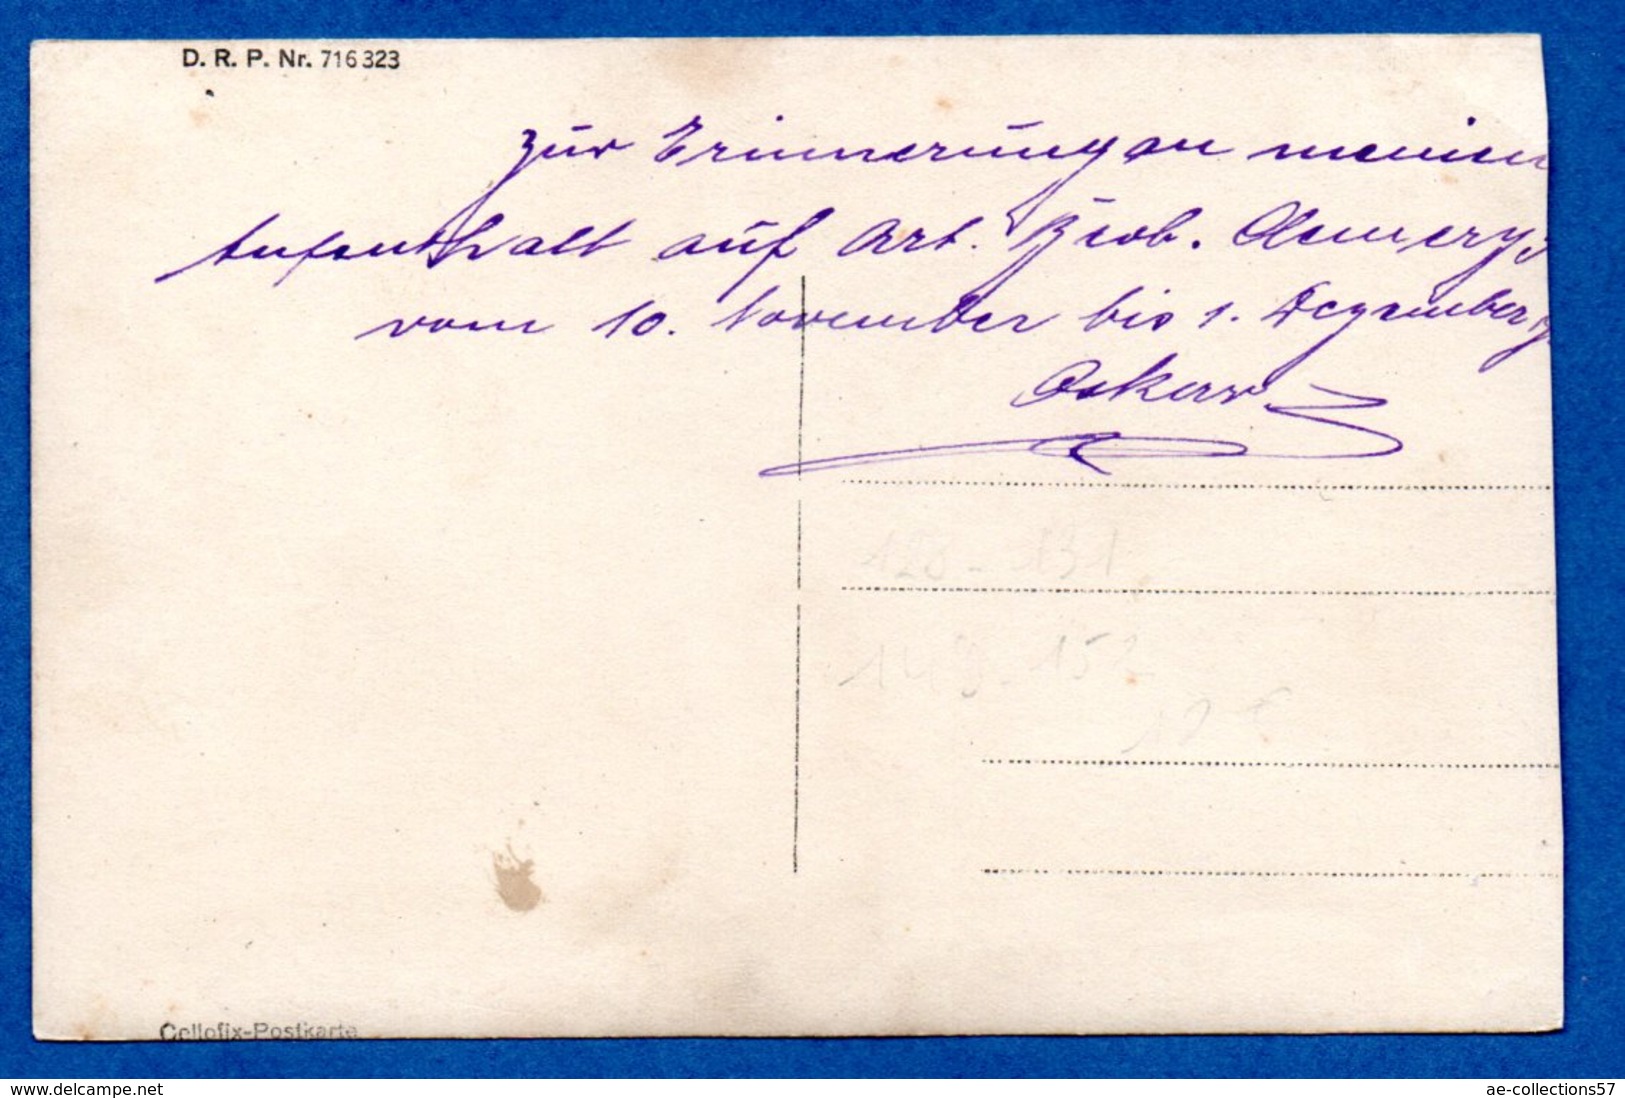 D. R. P. Nr. 716323
Zur Erinnerung an meinen
Aufenthalt auf Art. Beob.
vom 10. November bis 1. Dezember
Oskar
128 - 131
149 - 152
Cellofix-Postkarte
www.delcampe.net
ae-collections57